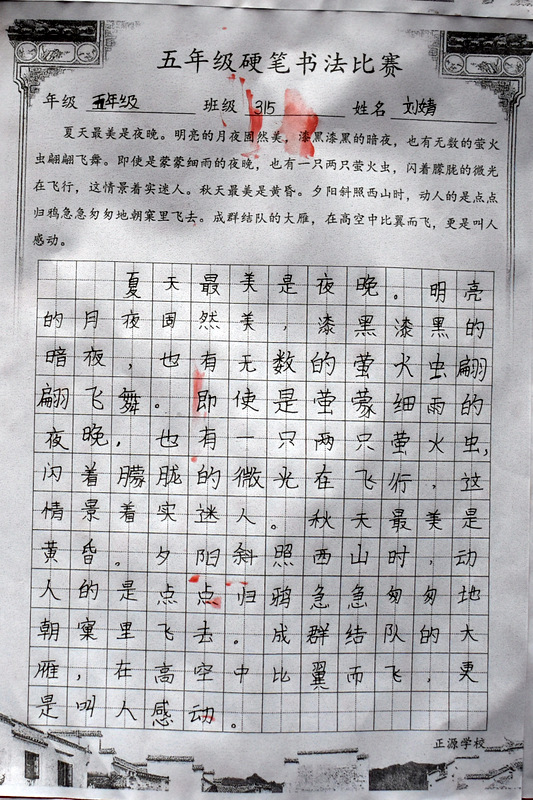 五年级硬笔书法比赛
年级 五年级 班级 315 姓名 刘婧
夏天最美是夜晚。明亮的月夜固然美，漆黑漆黑的暗夜，也有无数的萤火
虫翩翩飞舞。即使是蒙蒙细雨的夜晚，也有一只两只萤火虫，闪着朦胧的微光
在飞行，这情景着实迷人。秋天最美是黄昏。夕阳斜照西山时，动人的是点点
归鸦急急匆匆地朝窠里飞去。成群结队的大雁，在高空中比翼而飞，更是叫人
感动。
夏天最美是夜晚。明亮
的月夜固然美，漆黑漆黑的
暗夜，也有无数的萤火虫翩
翩飞舞。即使是萤蒙细雨的
夜晚，也有一只两只萤火虫，
闪着朦胧的微光在飞行，这
情景着实迷人。秋天最美是
黄昏。夕阳斜照西山时，动
人的是点点归鸦急急匆匆地
朝窠里飞去。成群结队的大
雁，在高空中比翼而飞，更
是叫人感动。
正源学校